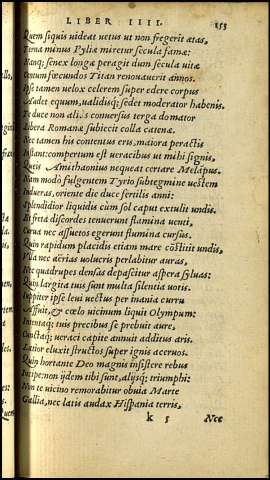 LIBER IIII.
153
Quem siquis uideat uetus ut non fregerit ætas,
Terna minus Pyliæ miretur secula famæ:
Nanq; senex longæ peragit dum secula uitæ
Centum fœcundos Titan renouauerit annos.
Ipse tamen uelox celerem super edere corpus
Audet equum, ualidisq; sedet moderator habenis.
Te duce non aliàs conuersus terga domator
Libera Romanæ subiecit colla catenæ.
Nec tamen his contentus eris, maiora peractis
Instant: compertum est ueracibus ut mihi signis,
Queis Amithaonius nequeat certare Melapus.
Nam modo fulgentem Tyrio subtegmine uestem
Indueras, oriente die duce fertilis anni:
Splendidior liquidis cum sol caput extulit undis.
Et freta discordes tenuerunt flamina uenti,
Curua nec assuetos egerunt flumina cursus.
Quin rapidum placidis etiam mare cōstitit undis,
Vlla nec aërias uolucris perlabitur auras,
Nec quadrupes densas depascitur aspera syluas:
Quin largita tuis sunt multa silentia uotis.
Iuppiter ipse leui uectus per inania curru
Affuit, & cœlo uicinum liquit Olympum:
Intentaq; tuis precibus se prebuit aure,
Cunctaq; ueraci capite annuit additus aris.
Latior eluxit structos super ignis aceruos.
Quin hortante Deo magnis insistere rebus
Incipe: non ijdem tibi sunt, alijsq; triumphi:
Non te uicino remorabitur obuia Marte
Gallia, nec latis audax Hispania terris,
k 5
Nec